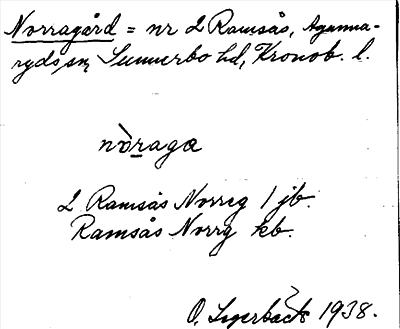 Norragård = nr 2 Ramsås, Agunna-
ryds sn, Sunnerbo hd, Kronob. l.
nòraga
2 Ramsås Norreg 1 jb.
Ramsås Norrg kb.
O. 1938.